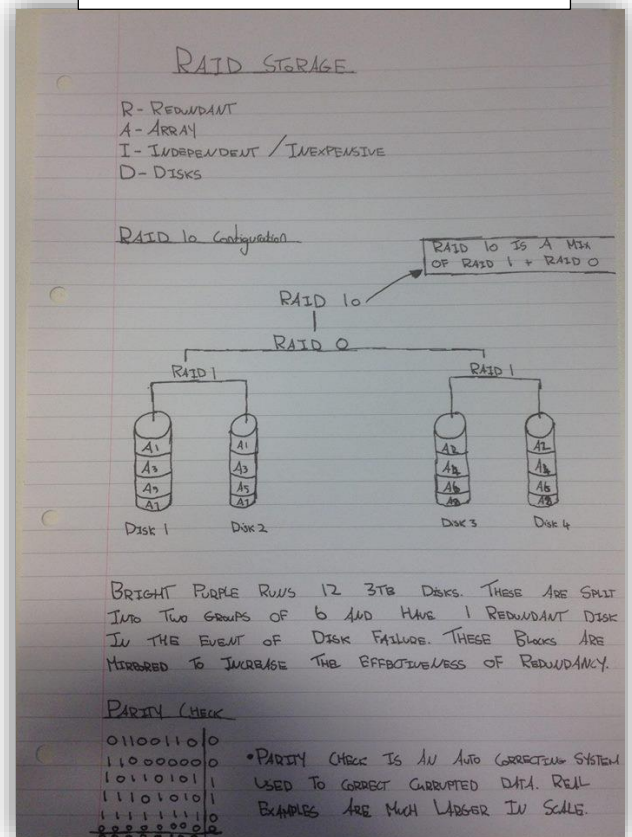 RAID STORAGE
R - REDUNDANT
A - ARRAY
I - INDEPENDENT / INEXPENSIVE
D - DISKS
RAID 10 Configuration
RAID 10 IS A MIX
OF RAID 1 + RAID 0
RAID 10
RAID 0
RAID 1 RAID 1
A1 A1 A2 A2
A3 A3 A4 A4
A5 A5 A6 A6
A7 A7 A8 A8
DISK 1 DISK 2 DISK 3 DISK 4
BRIGHT PURPLE RUNS 12 3TB DISKS. THESE ARE SPLIT
INTO TWO GROUPS OF 6 AND HAVE 1 REDUNDANT DISK
IN THE EVENT OF DISK FAILURE. THESE BLOCKS ARE
MIRRORED TO INCREASE THE EFFECTIVENESS OF REDUNDANCY.
PARITY CHECK
01100110|0
11000000|0
10110101|1
11101010|1
11111111|0
• PARITY CHECK IS AN AUTO CORRECTING SYSTEM
USED TO CORRECT CURRUPTED DATA. REAL
EXAMPLES ARE MUCH LARGER IN SCALE.